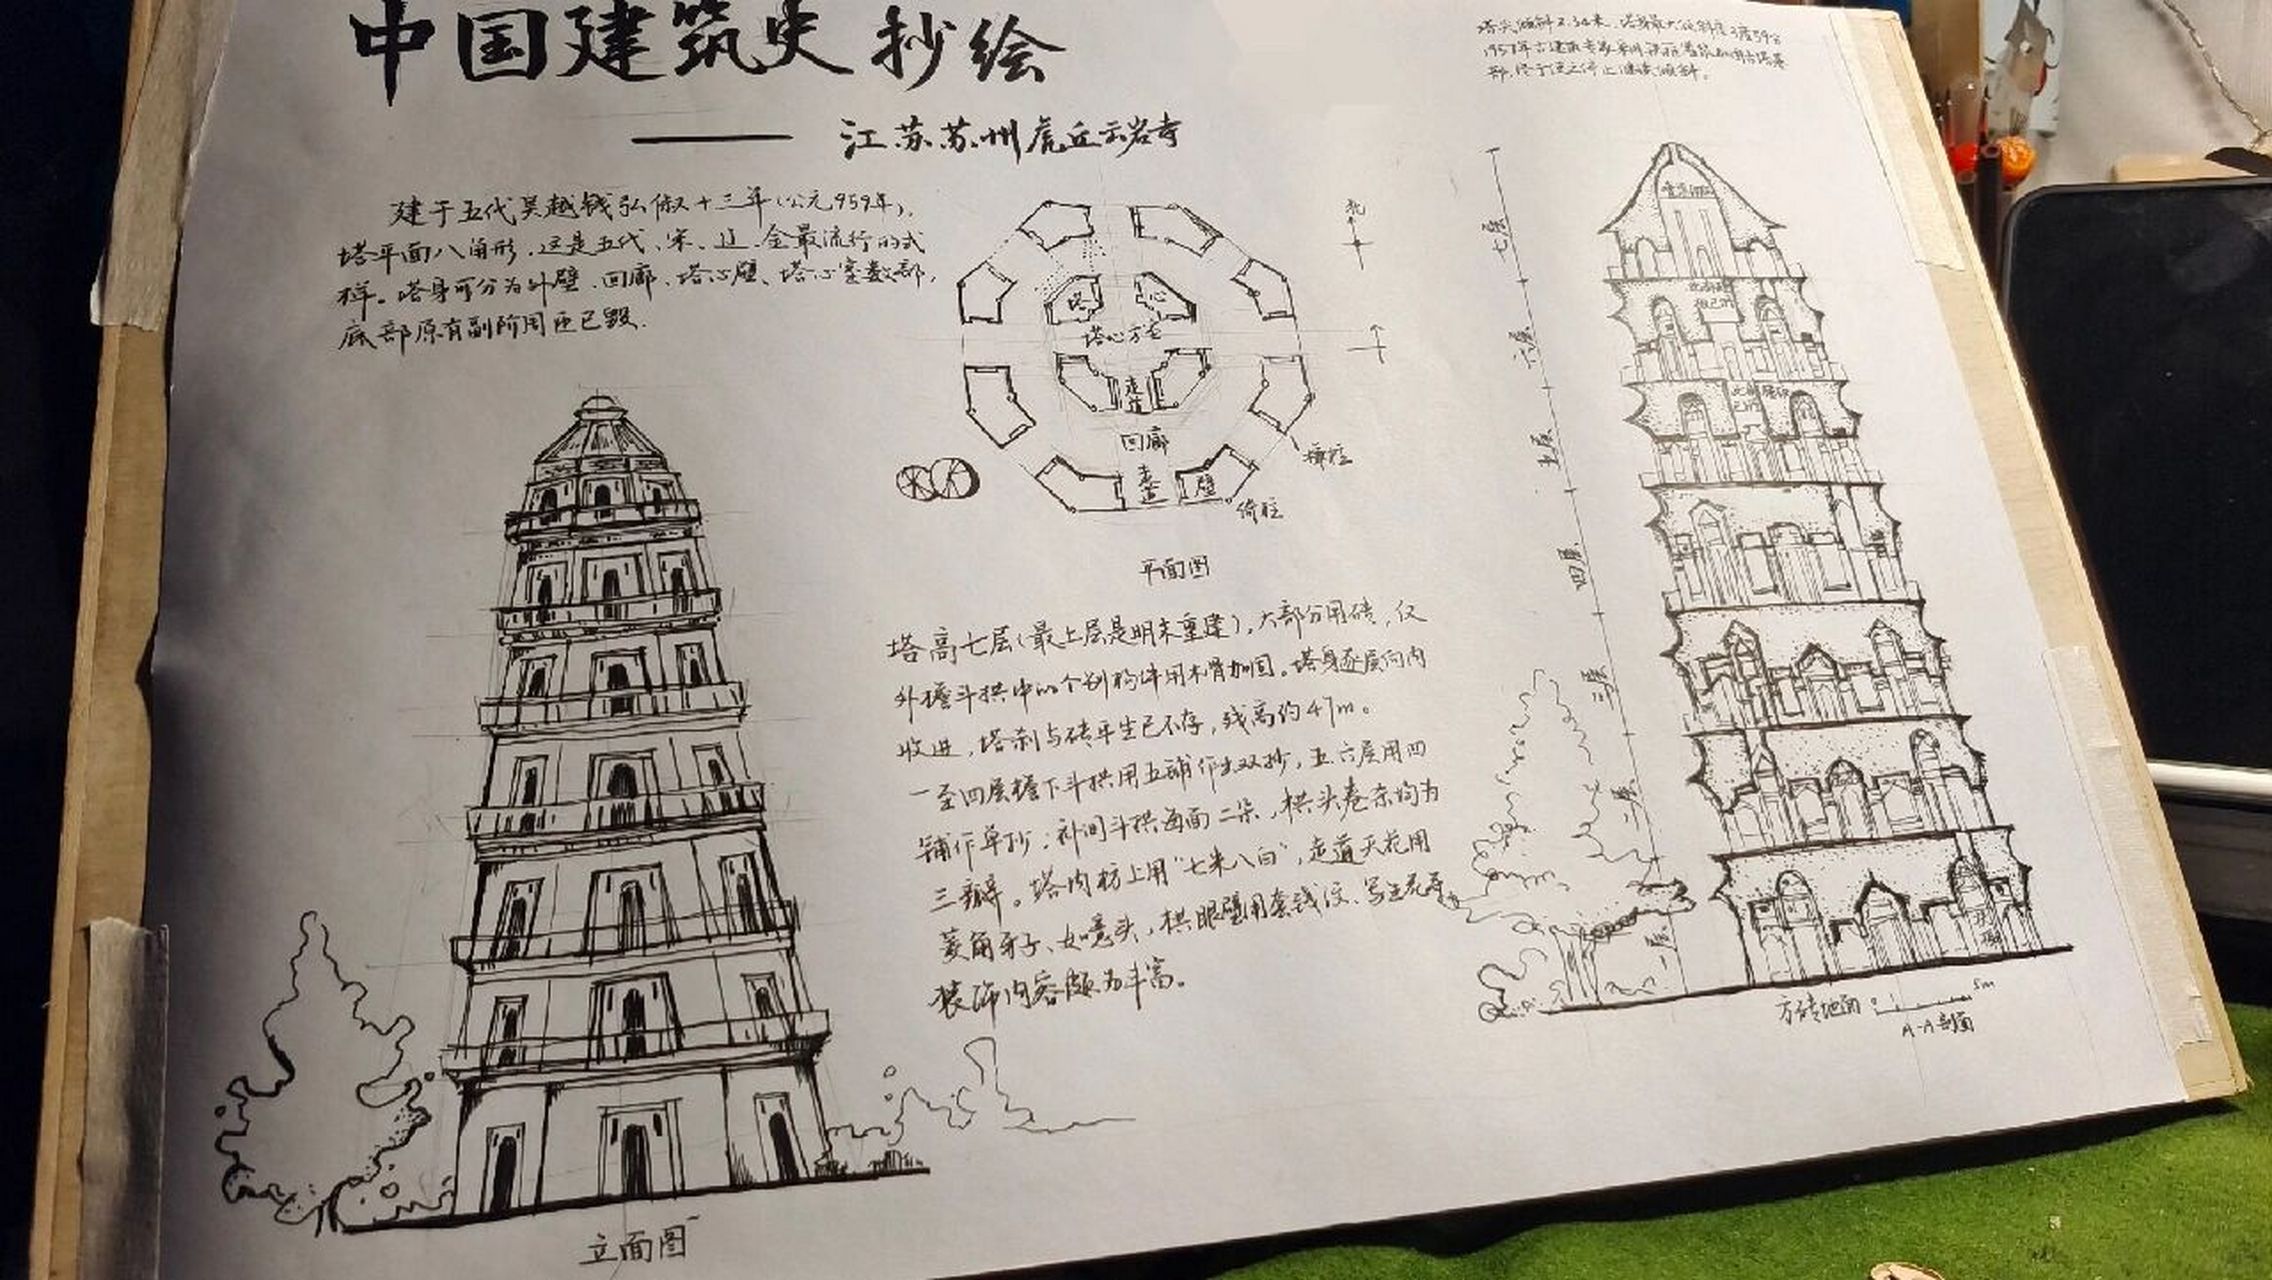 中国建筑史抄绘
—— 江苏苏州虎丘云岩寺
塔尖倾斜2.34米，塔身最大倾斜度3度59分
1957年古建筑专家采用铁箍灌浆加固古塔基
部，终于使之停止继续倾斜。
建于五代吴越钱弘俶十三年（公元959年），
塔平面八角形，这是五代、宋、辽、金最流行的式
样。塔身可分为外壁、回廊、塔心壁、塔心室数部，
底部原有副阶周匝已毁.
北
塔
心
塔心方室
走道
回廊
走道
壁
槏柱
倚柱
平面图
塔高七层（最上层是明末重建），大部分用砖，仅
外檐斗拱中的个别构件用木骨加固。塔身逐层向内
收进，塔刹与砖平坐已不存，残高约47m。
一至四层檐下斗拱用五铺作出双抄，五、六层用四
铺作单抄；补间斗拱每面二朵，栱头卷杀均为
三瓣。塔内枋上用“七朱八白”，走道天花用
菱角牙子、如意头，栱眼壁用套钱纹、写生花等，
装饰内容颇为丰富。
立面图
七层
六层
五层
四层
三层
二层
一层
方砖地面
0
5m
A-A剖面